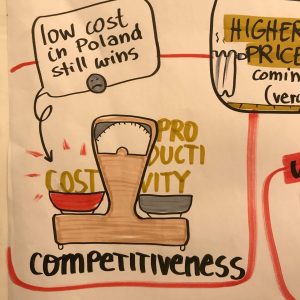 low cost
in Poland
still wins
HIGHER
PRICE
comin
(ver
COST
PRO
DUCTI
VITY
COMPETITIVENESS